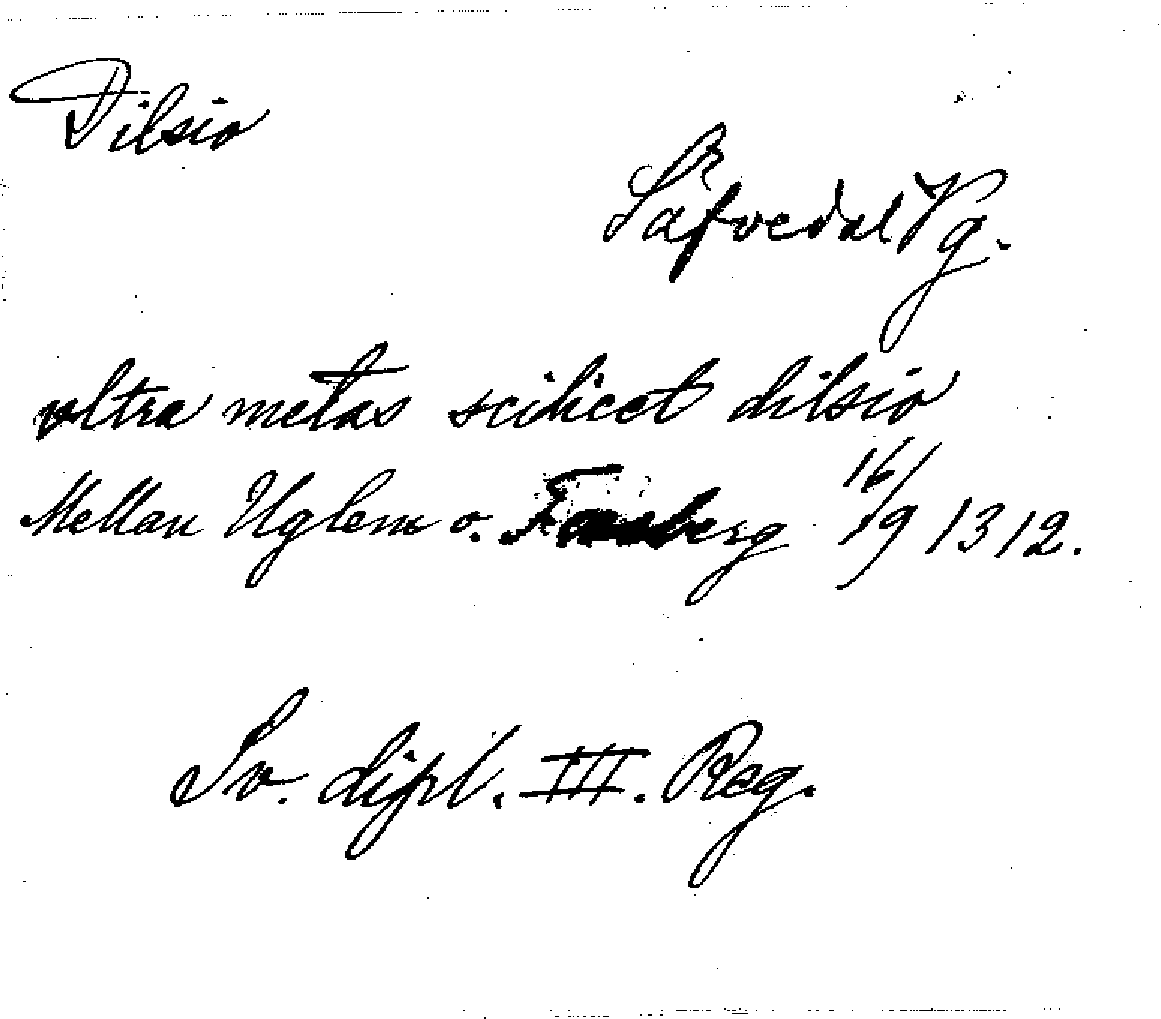 Dilsio
Säfvedal Vg.
ultra metas scilicet dilsio
Mellan Uglem o. 16/9 1312.
Sv. dipl. III. Reg.